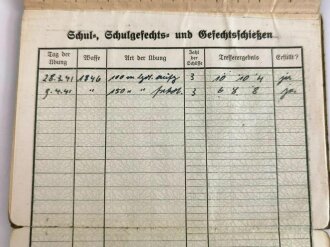 Schul-, Schulgefechts- und Gefechtsschießen
Tag der Übung Waffe Art der Übung Zahl der Schüsse Treffergebnis Erfüllt?
28.3.41 1846 100 m 3 10 10 4 ja
9.4.41 " 150 " " 3 6 8 8 ja